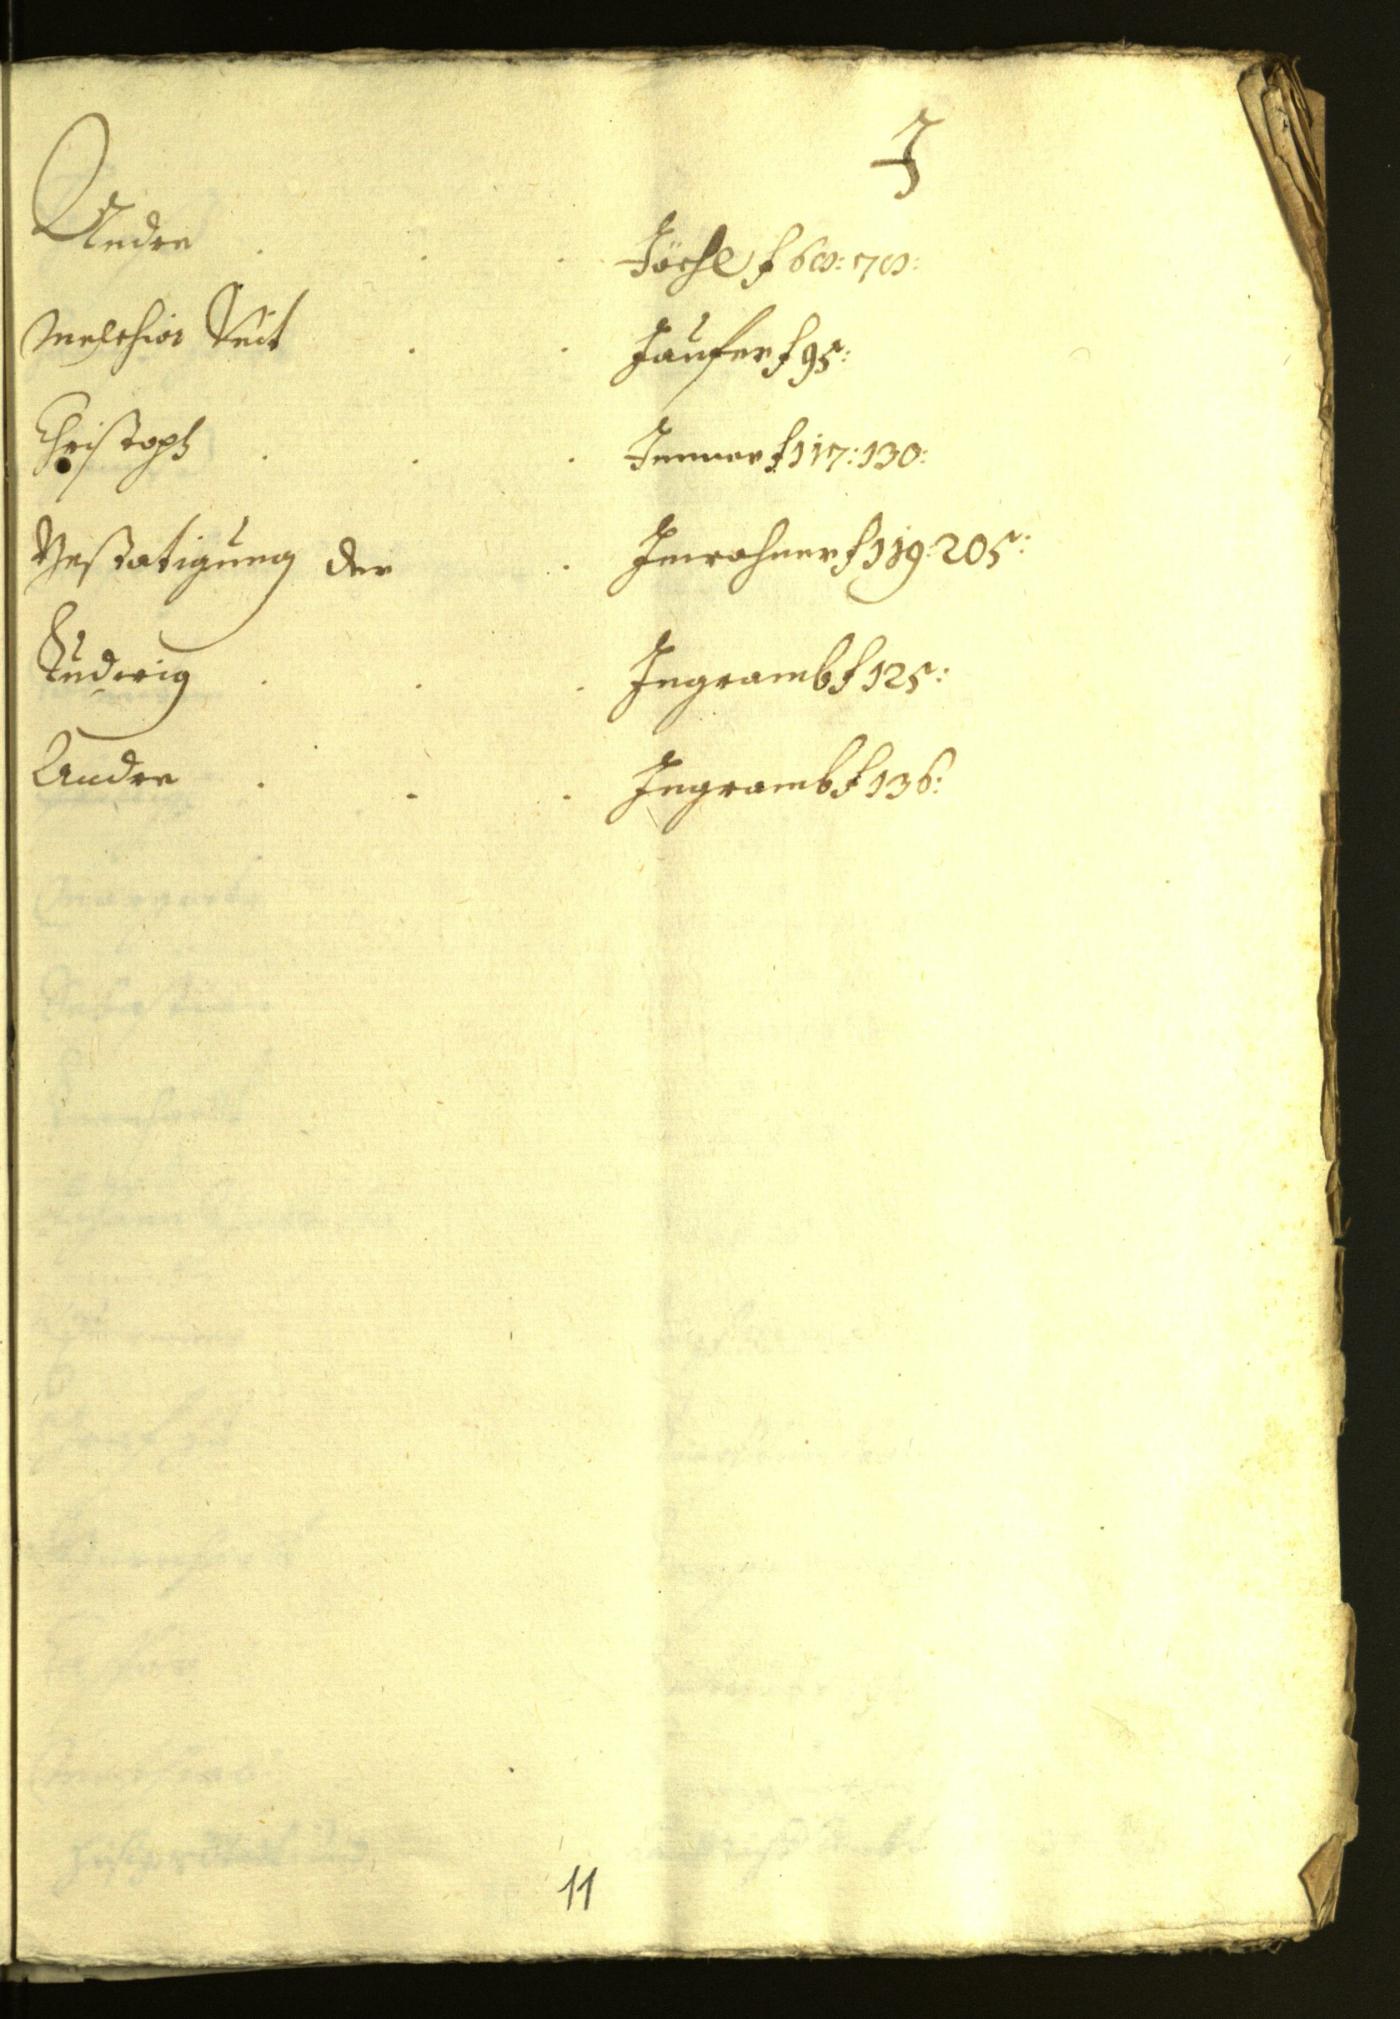 J
Andre . . . Jöchl f 60: 70:
Melchior Veit . . Jaufer f 95:
Christoph . . . Jenner f 117: 130:
Bestatigung der . Inwohner f 119: 205:
Ludwig . . . Ingramb f 125:
Andre . . . Ingramb f 136:
11